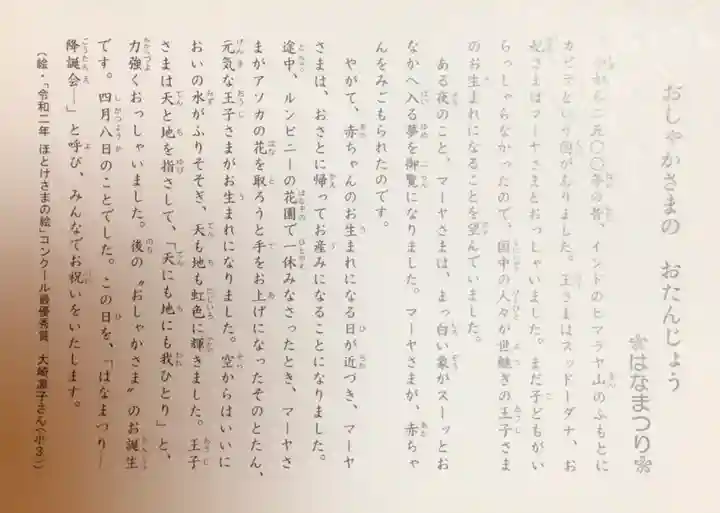 おしゃかさまの　おたんじょう
❀はなまつり❀
今から二五〇〇年の昔、インドのヒマラヤ山のふもとに
カピラという国がありました。王さまはスッドーダナ、お
妃さまはマーヤさまとおっしゃいました。まだ子どもがい
らっしゃらなかったので、国中の人々が世継ぎの王子さま
のお生まれになることを望んでいました。
ある夜のこと、マーヤさまは、まっ白い象がスーッとお
なかへ入る夢を御覧になりました。マーヤさまが、赤ちゃ
んをみごもられたのです。
やがて、赤ちゃんのお生まれになる日が近づき、マーヤ
さまは、おさとに帰ってお産みになることになりました。
途中、ルンビニーの花園で一休みなさったとき、マーヤさ
まがアソカの花を取ろうと手をお上げになったそのとたん、
元気な王子さまがお生まれになりました。空からはいいに
おいの水がふりそそぎ、天も地も虹色に輝きました。王子
さまは天と地を指さして、「天にも地にも我ひとり」と、
力強くおっしゃいました。後の〝おしゃかさま〟のお誕生
です。四月八日のことでした。この日を、「はなまつり―
降誕会―」と呼び、みんなでお祝いをいたします。
（絵・「令和二年 ほとけさまの絵」コンクール最優秀賞　大崎凛子さん〈小３〉）